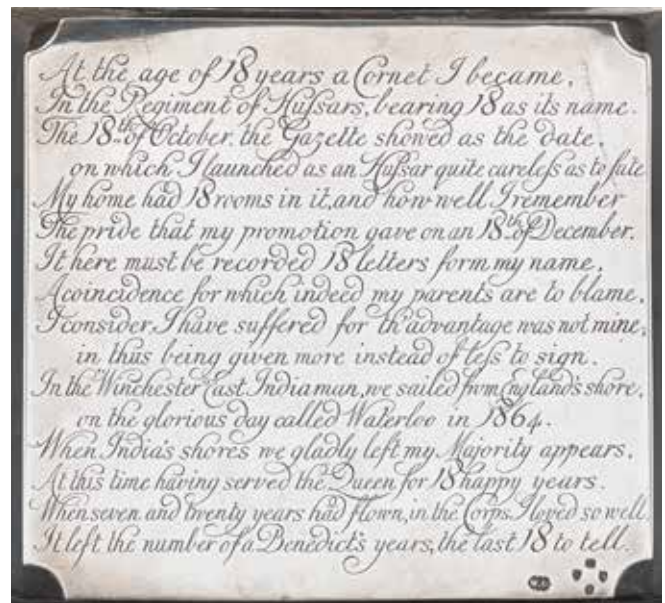 At the age of 18 years a Cornet I became,
In the Regiment of Hufsars, bearing 18 as its name.
The 18th of October, the Gazette showed as the date,
on which I launched as an Hufsar quite carelefs as to fate
My home had 18 rooms in it, and how well I remember
The pride that my promotion gave on an 18th of December.
It here must be recorded 18 letters form my name,
A coincidence for which indeed my parents are to blame,
I consider I have suffered for th' advantage was not mine,
in thus being given more instead of lefs to sign.
In the Winchester East Indiaman, we sailed from England's shore,
on the glorious day called Waterloo in 1864.
When India's shores we gladly left my Majority appears,
At this time having served the Queen for 18 happy years.
When seven and twenty years had flown, in the Corps I loved so well,
It left the number of a Benedict's years, the last 18 to tell.